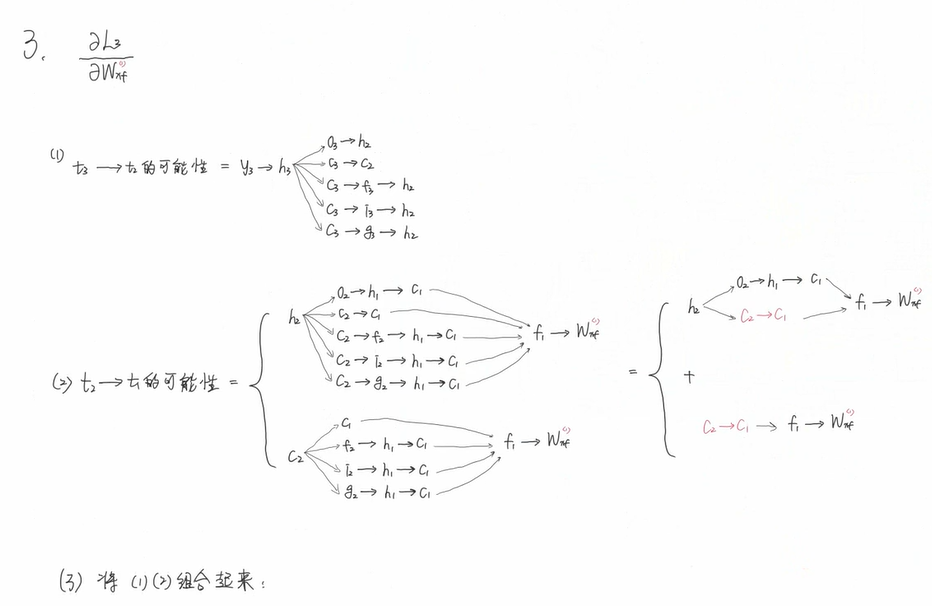 3. ∂L₃ / ∂Wxf⁽¹⁾
(1) t₃ → t₂ 的可能性 = y₃ → h₃
O₃ → h₂
C₃ → C₂
C₃ → f₃ → h₂
C₃ → i₃ → h₂
C₃ → g₃ → h₂
(2) t₂ → t₁ 的可能性 =
h₂
O₂ → h₁ → C₁
C₂ → C₁
C₂ → f₂ → h₁ → C₁
C₂ → i₂ → h₁ → C₁
C₂ → g₂ → h₁ → C₁
f₁ → Wxf⁽¹⁾
C₂
C₁
f₂ → h₁ → C₁
i₂ → h₁ → C₁
g₂ → h₁ → C₁
f₁ → Wxf⁽¹⁾
=
h₂
O₂ → h₁ → C₁
C₂ → C₁
f₁ → Wxf⁽¹⁾
+
C₂ → C₁ → f₁ → Wxf⁽¹⁾
(3) 将 (1) (2) 组合起来：